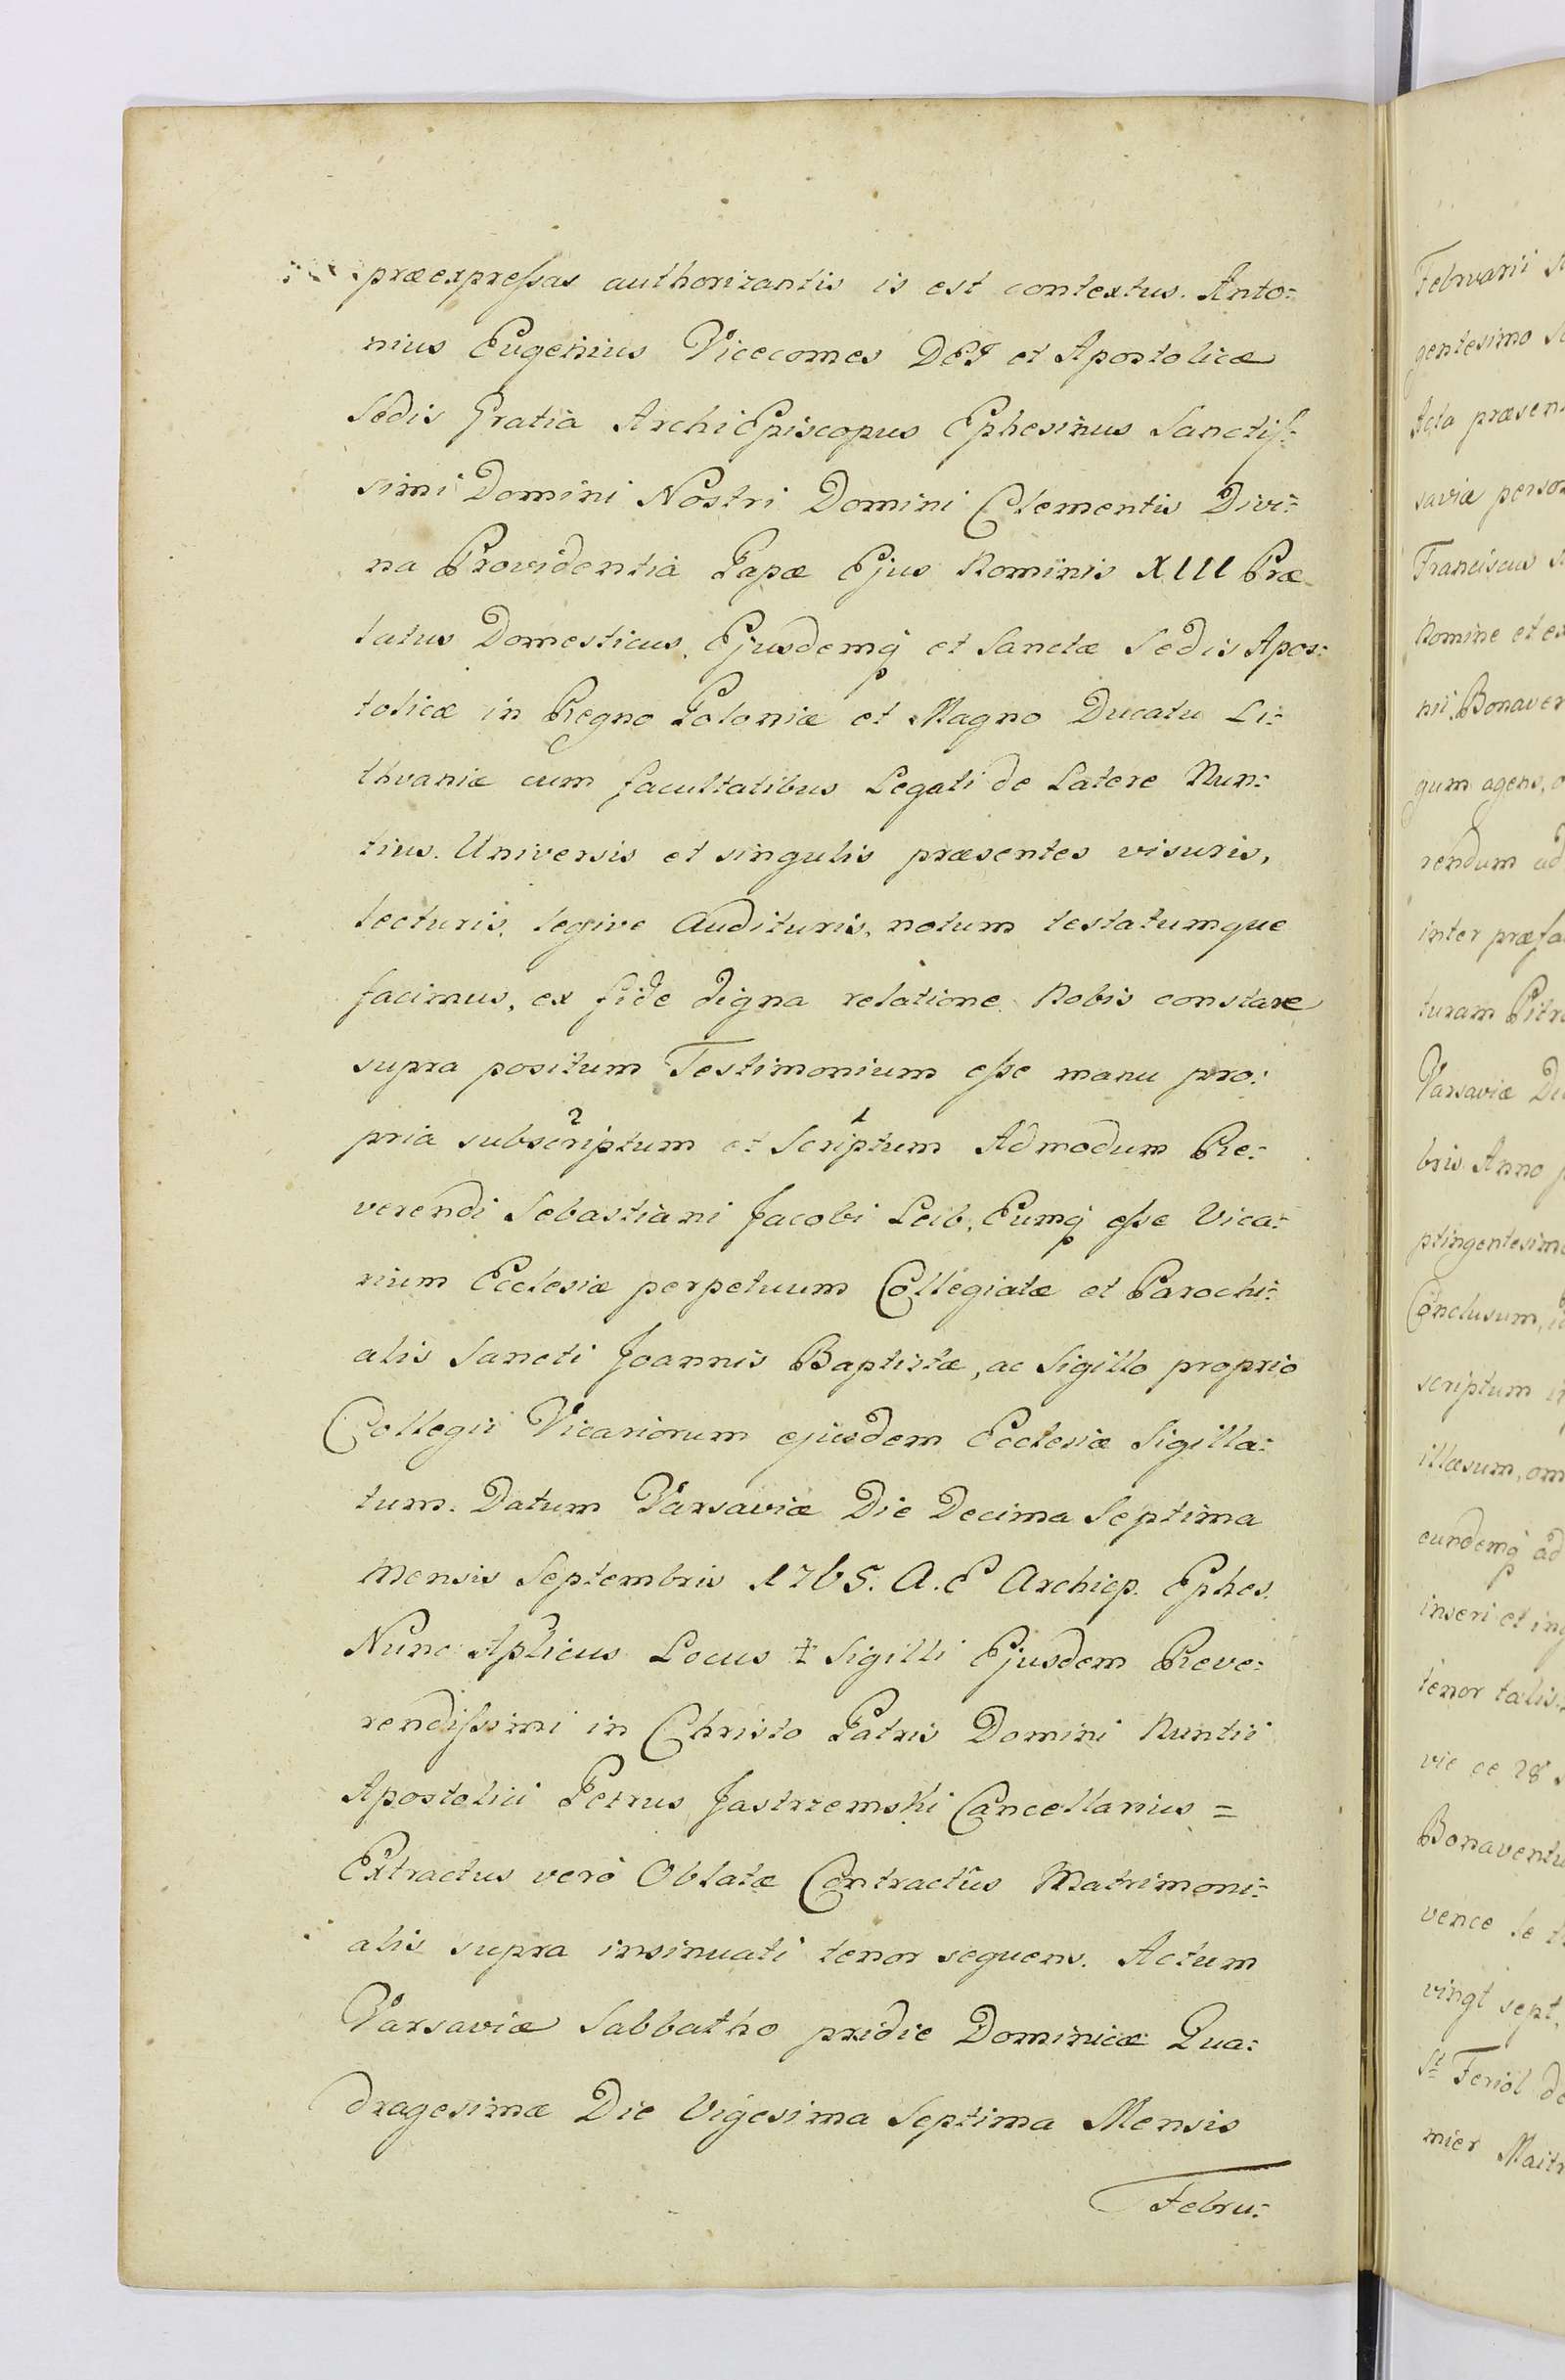 præexpreſsas authorizantis is est contextus. Anto:
nius Eugenius Vicecomes DEI et Apostolicæ
Sedis Gratia ArchiEpiscopus Ephesinus Sanctiſ:
simi Domini Nostri Domini Clementis Divi:
na Providentia Papæ Ejus Nominis XIII Præ
latus Domesticus, Ejusdemq et Sanctæ Sedis Apos:
tolicæ in Regno Poloniæ et Magno Ducatu Li:
thvaniæ cum facultatibus Legati de Latere Nun:
tius. Universis et singulis præsentes visuris,
lecturis, legive audituris, notum testatumque
facimus, ex fide digna relatione Nobis constare
supra positum Testimonium eſse manu pro:
2 1
pria subscriptum et Scriptum Admodum Re:
verendi Sebastiani Jacobi Leib, Eumq eſse Vica:
rium Ecclesiæ perpetuum Collegiatæ et Parochi:
alis Sancti Joannis Baptistæ, ac Sigillo proprio
Collegii Vicariorum ejusdem Ecclesiæ Sigilla:
tum. Datum Varsaviæ Die Decima Septima
Mensis Septembris 1765. A. E Archiep. Ephes.
Nunc Aplicus Locus ‡ Sigilli Ejusdem Reve:
rendiſsimi in Christo Patris Domini Nuntii
Apostolici Petrus Jastrzemski Cancellarius =
Extractus verò Oblatæ Contractûs Matrimoni:
alis supra insinuati tenor sequens. Actum
Varsaviæ Sabbatho pridie Dominicæ Qua:
dragesimæ Die Vigesima Septima Mensis
Febru:
Februarii
gentesimo
Acta præsen
saviæ person
Franciscus
Nomine et ex
nii Bonaven
gum agens,
rendum ad
inter præfa
turam
Varsaviæ
bris Anno
ptingentesimo
Conclusum,
scriptum
illæsum, om
eundemq ad
inseri et ing
tenor talis.
vie ce 28
Bonaventu
vence le
vingt sept,
St Feriol de
mier Maitr